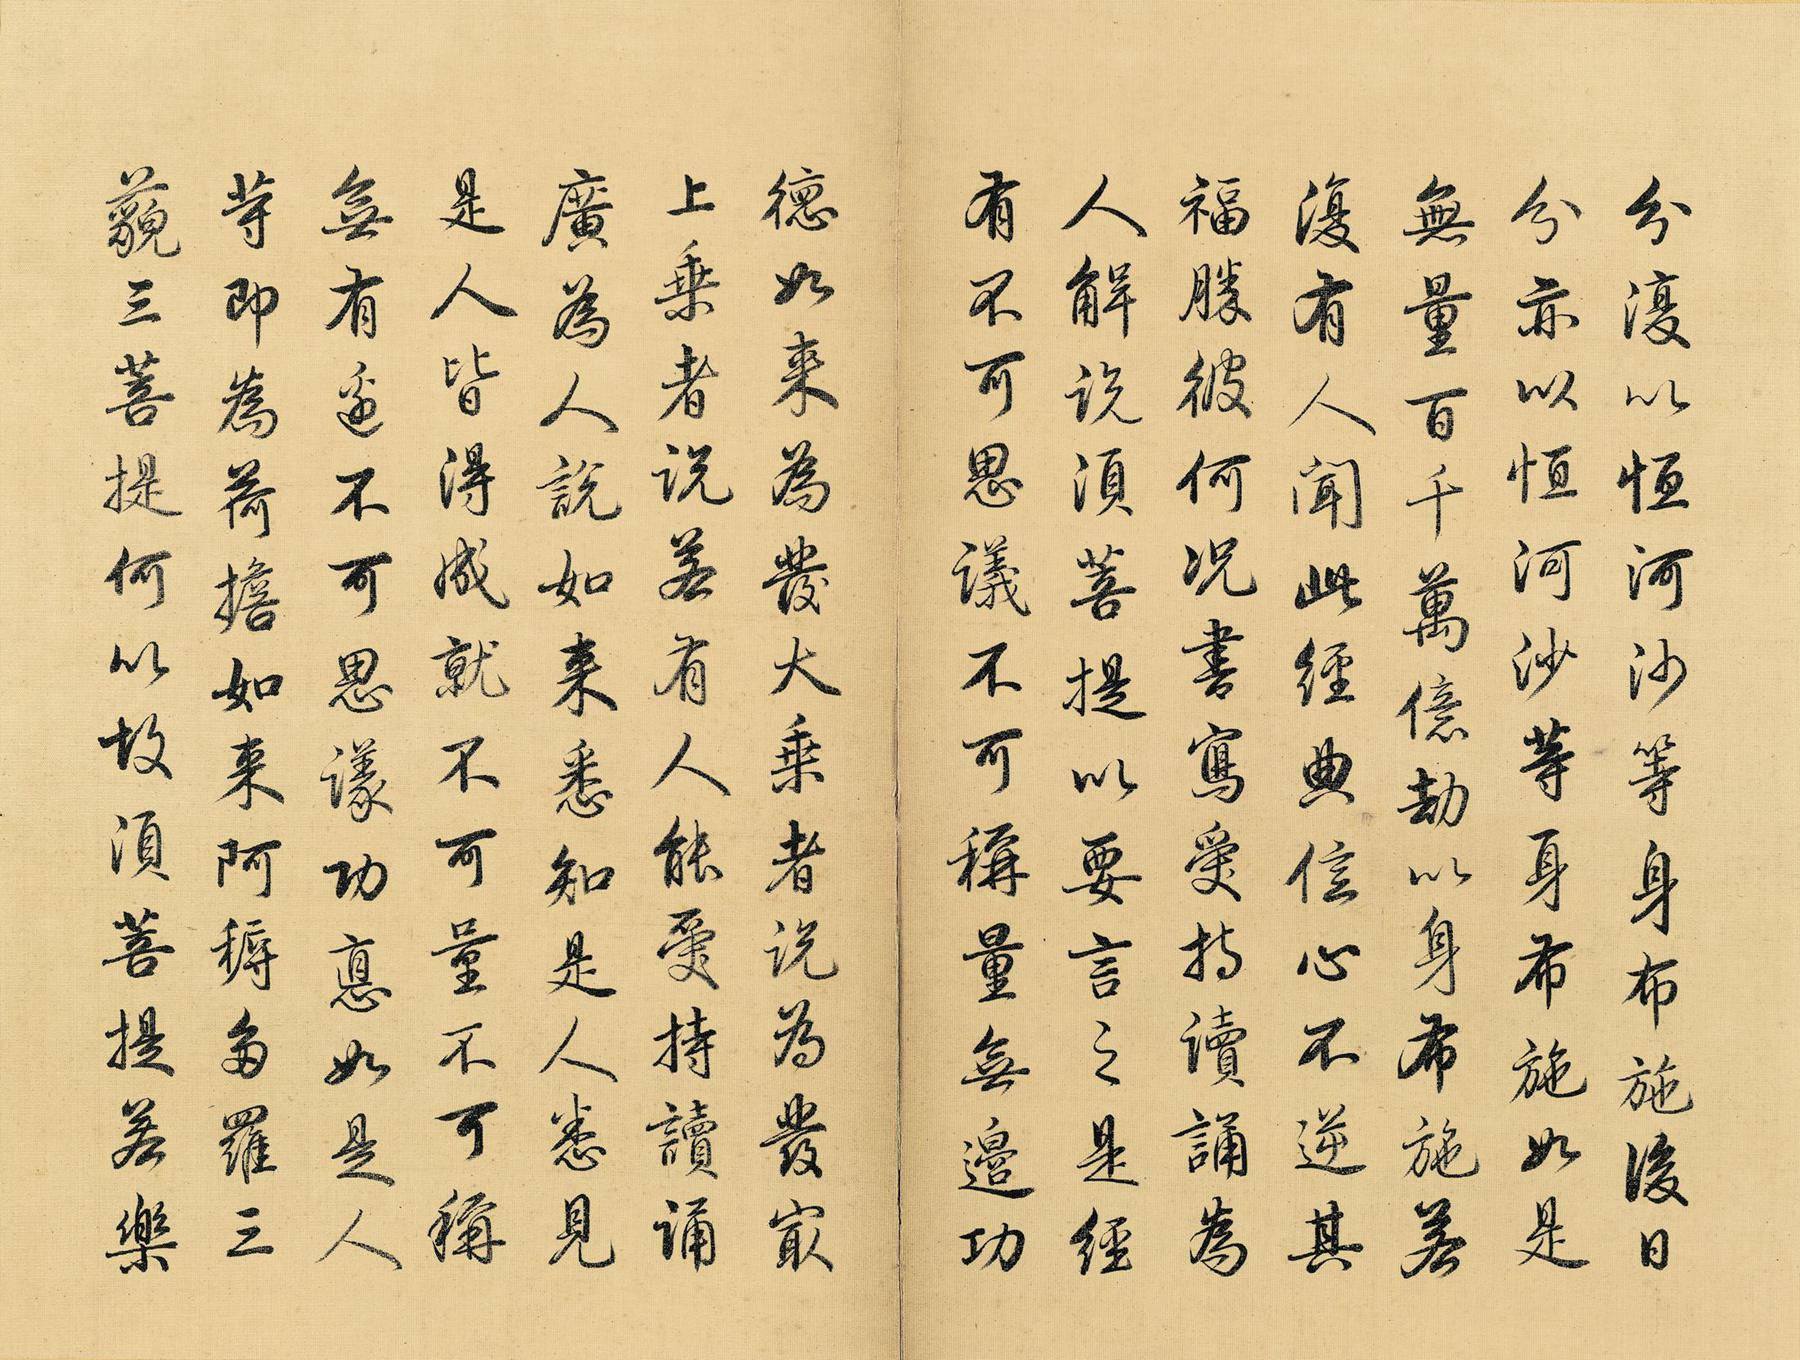 分復以恒河沙等身布施後日
分亦以恒河沙等身布施如是
無量百千萬億劫以身布施若
復有人聞此經典信心不逆其
福勝彼何況書寫受持讀誦為
人解説須菩提以要言之是經
有不可思議不可稱量無邊功
德如来為發大乗者説為發冣
上乗者説若有人能受持讀誦
廣為人説如来悉知是人悉見
是人皆得成就不可量不可稱
無有邊不可思議功悳如是人
等即為荷擔如来阿耨多羅三
藐三菩提何以故須菩提若樂